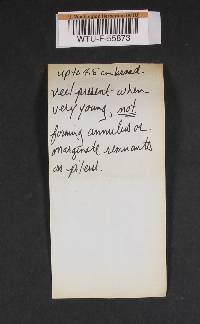 WTU-F-55673
up to 4.5 cm broad.
veil present when
very young, not
forming annulus or
marginate remnants
on pileus.